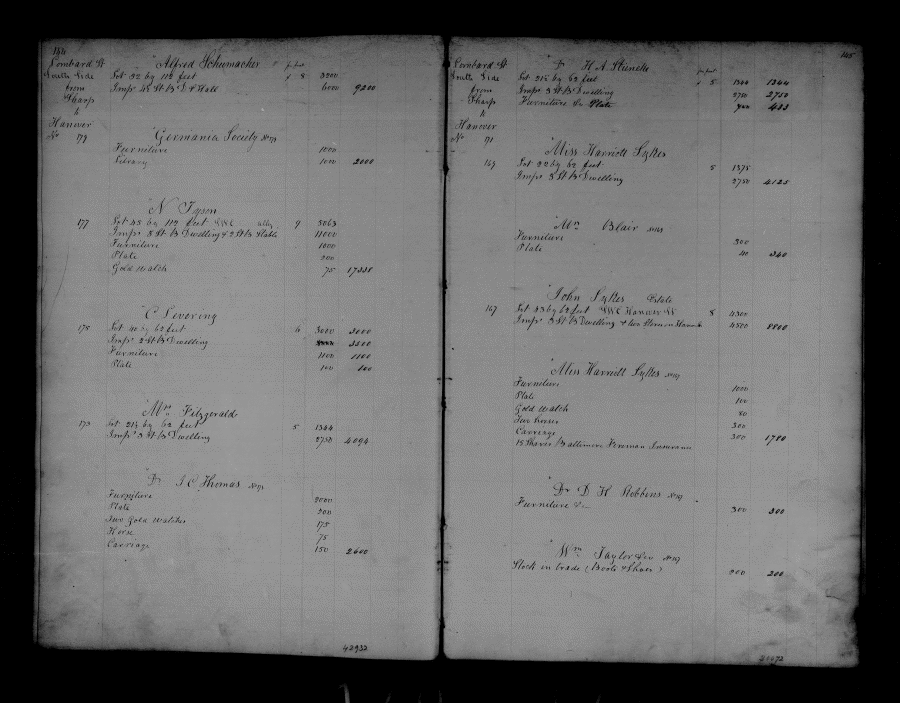 144
Lombard St
South Side
from
Sharp
to
Hanover
No 179
Alfred Schumacher
pr foot
Lot 32 by 112 feet 8 3200
Imps 4 St B D & Stall 6000 9200
Germania Society No 179
Furniture 1000
Library 1000 2000
N Tyson
177 Lot 45 by 112 feet alley 9 5063
Imps 3 St B Dwelling & 2 St B Stable 11000
Furniture 1000
Plate 200
Gold Watch 75 17338
C Levering
175 Lot 40 by 62 feet 6 3000 3000
Imps 2 St B Dwelling 3500
Furniture 1100 1100
Plate 100 100
Mrs Fitzgerald
173 Lot 21½ by 62 feet 5 1344
Imps 3 St B Dwelling 2750 4094
Dr J C Thomas No 171
Furniture 2000
Plate 200
Two Gold Watches 175
Horse 75
Carriage 150 2600
42932
145
Lombard St
South Side
from
Sharp
to
Hanover
No 171
H A
pr foot
Lot 21½ by 62 feet 5 1344 1344
Imps 3 St B Dwelling 2750 2750
Furniture &c Plate 433
Miss Harriott Sykes
169 Lot 22 by 62 feet 5 1375
Imps 3 St B Dwelling 2750 4125
Mrs Blair No 169
Furniture 300
Plate 40 340
John Sykes Estate
167 Lot 33 by 62 feet SWC Hanover St 8 4300
Imps 3 St B Dwelling & two Stores on Hanover 4500 8800
Miss Harriott Sykes No 167
Furniture 1000
Plate 100
Gold Watch 80
Two horses 300
Carriage 300 1780
18 Shares Baltimore Fireman Insurance
Dr D H Robbins No 167
Furniture &c 300 300
Wm Taylor No 167
Stock in trade (Boots & Shoes) 200 200
21072